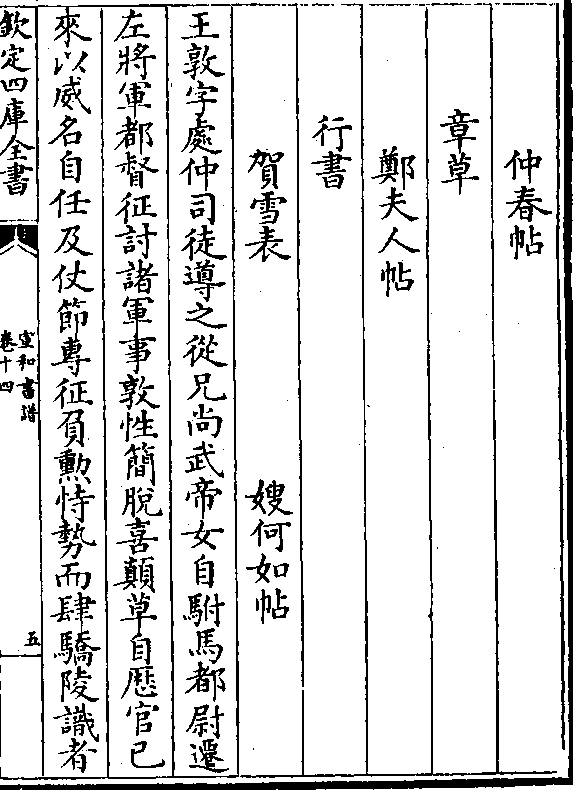 仲春帖
章草
鄭夫人帖
行書
賀雪表　嫂何如帖
王敦字處仲司徒導之從兄尚武帝女自駙馬都尉遷
左將軍都督征討諸軍事敦性簡脫喜顛草自歷官已
來以威名自任及仗節專征負勲恃勢而肆驕陵識者
欽定四庫全書
宣和書譜
卷十四
五